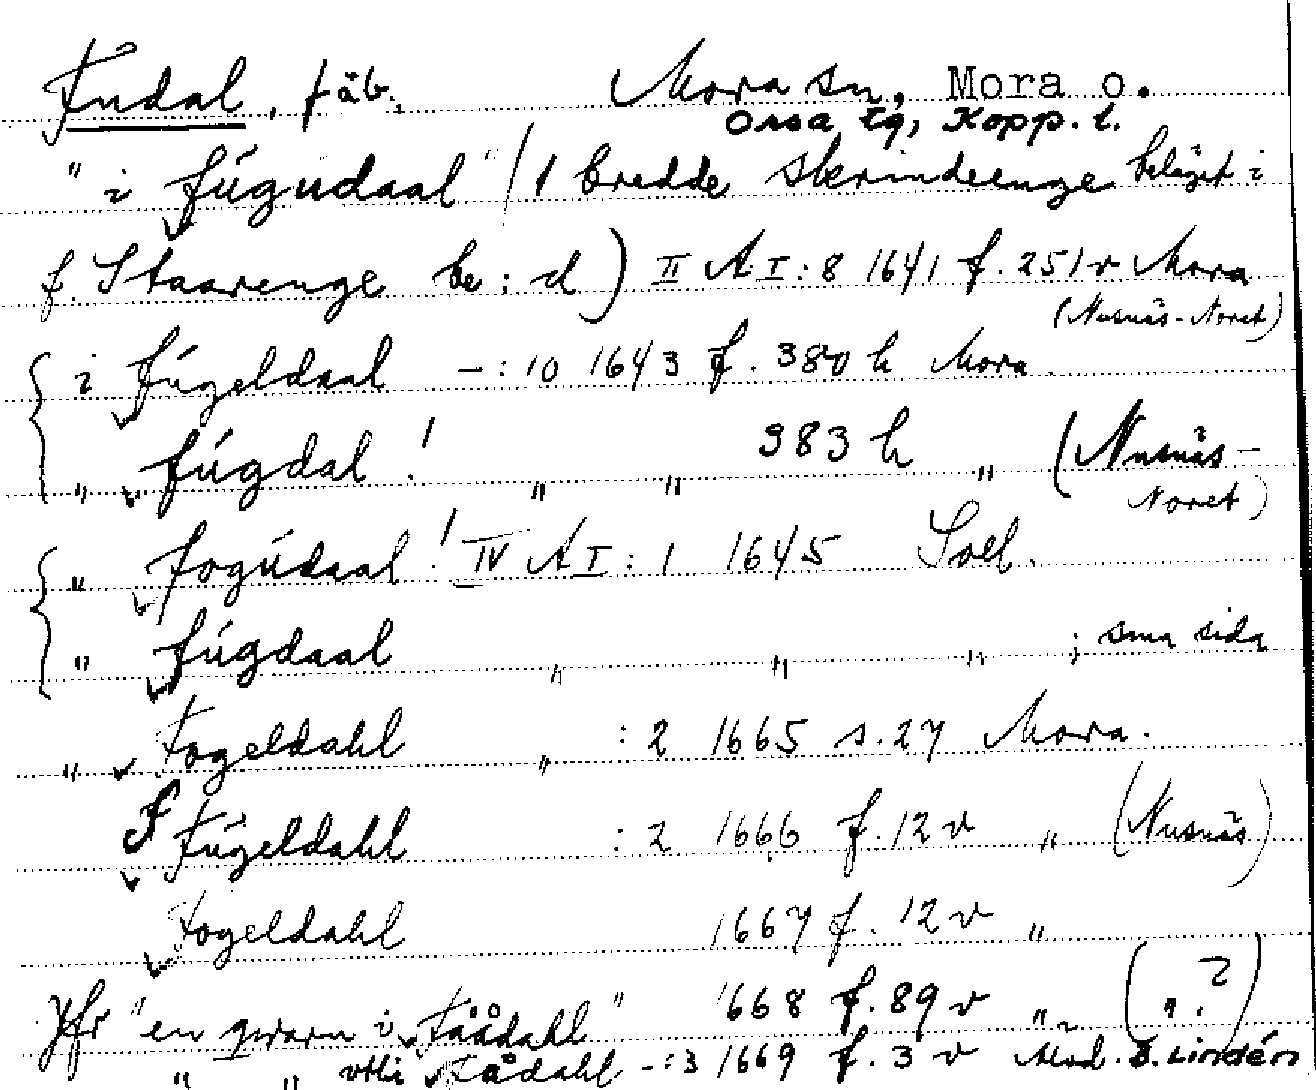 Fudal, fäb. Mora sn, Mora o.
Orsa tg, Kopp. l.
" i fúgudaal" / 1 bredde skrindeenge beläget i
f. Staarenge be: d) II A I: 8 1641 f. 251 v Mora
(Nusnäs-Noret)
i fúgeldaal -: 10 1643 f. 380 h Mora.
" fúgdal! " " 383 h " (Nusnäs-
Noret)
" fogúdaal! IV A I: 1 1645 Soll.
" fúgdaal " " " ; sma sida
" Fogeldahl " : 2 1665 s. 27 Mora.
F Fúgeldahl : 2 1666 f. 12 v " (Nusnäs)
Fogeldahl 1667 f. 12 v "
Jfr "en qwarn i Fåådahl" 1668 f. 89 v " (".?)
" " Fådahl -: 3 1669 f. 3 v Med. B. Lindén